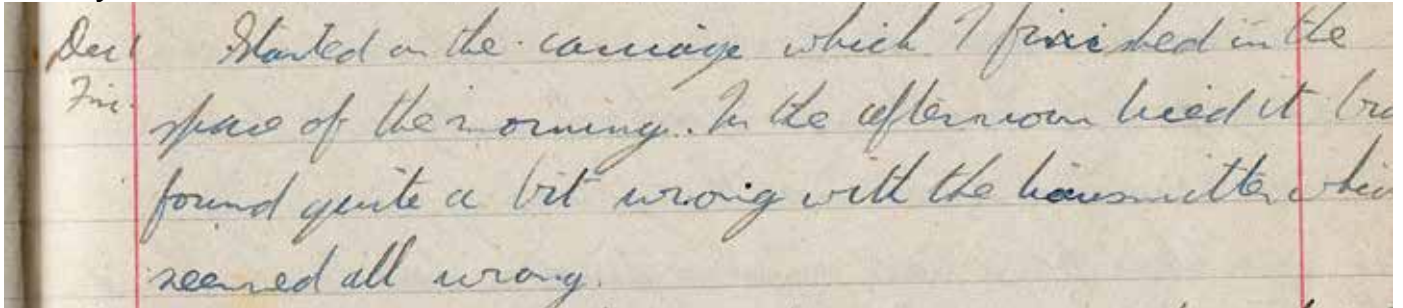 Dec 1 Started on the carriage which I finished in the
Fri. space of the morning. In the afternoon tried it
found quite a bit wrong with the transmitter
seemed all wrong.